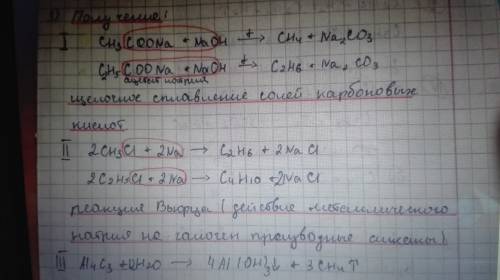 1) Получение:
I CH3COONa + NaOH →t CH4 + Na2CO3
C2H5COONa + NaOH →t C2H6 + Na2CO3
ацетат натрия
щелочное сплавление солей карбоновых
кислот
II 2CH3Cl + 2Na → C2H6 + 2NaCl
2C2H5Cl + 2Na → C4H10 + 2NaCl
реакция Вюрца (действие металлического
натрия на галоген производные
III Al4C3 + 12H2O → 4Al(OH)3↓ + 3CH4↑